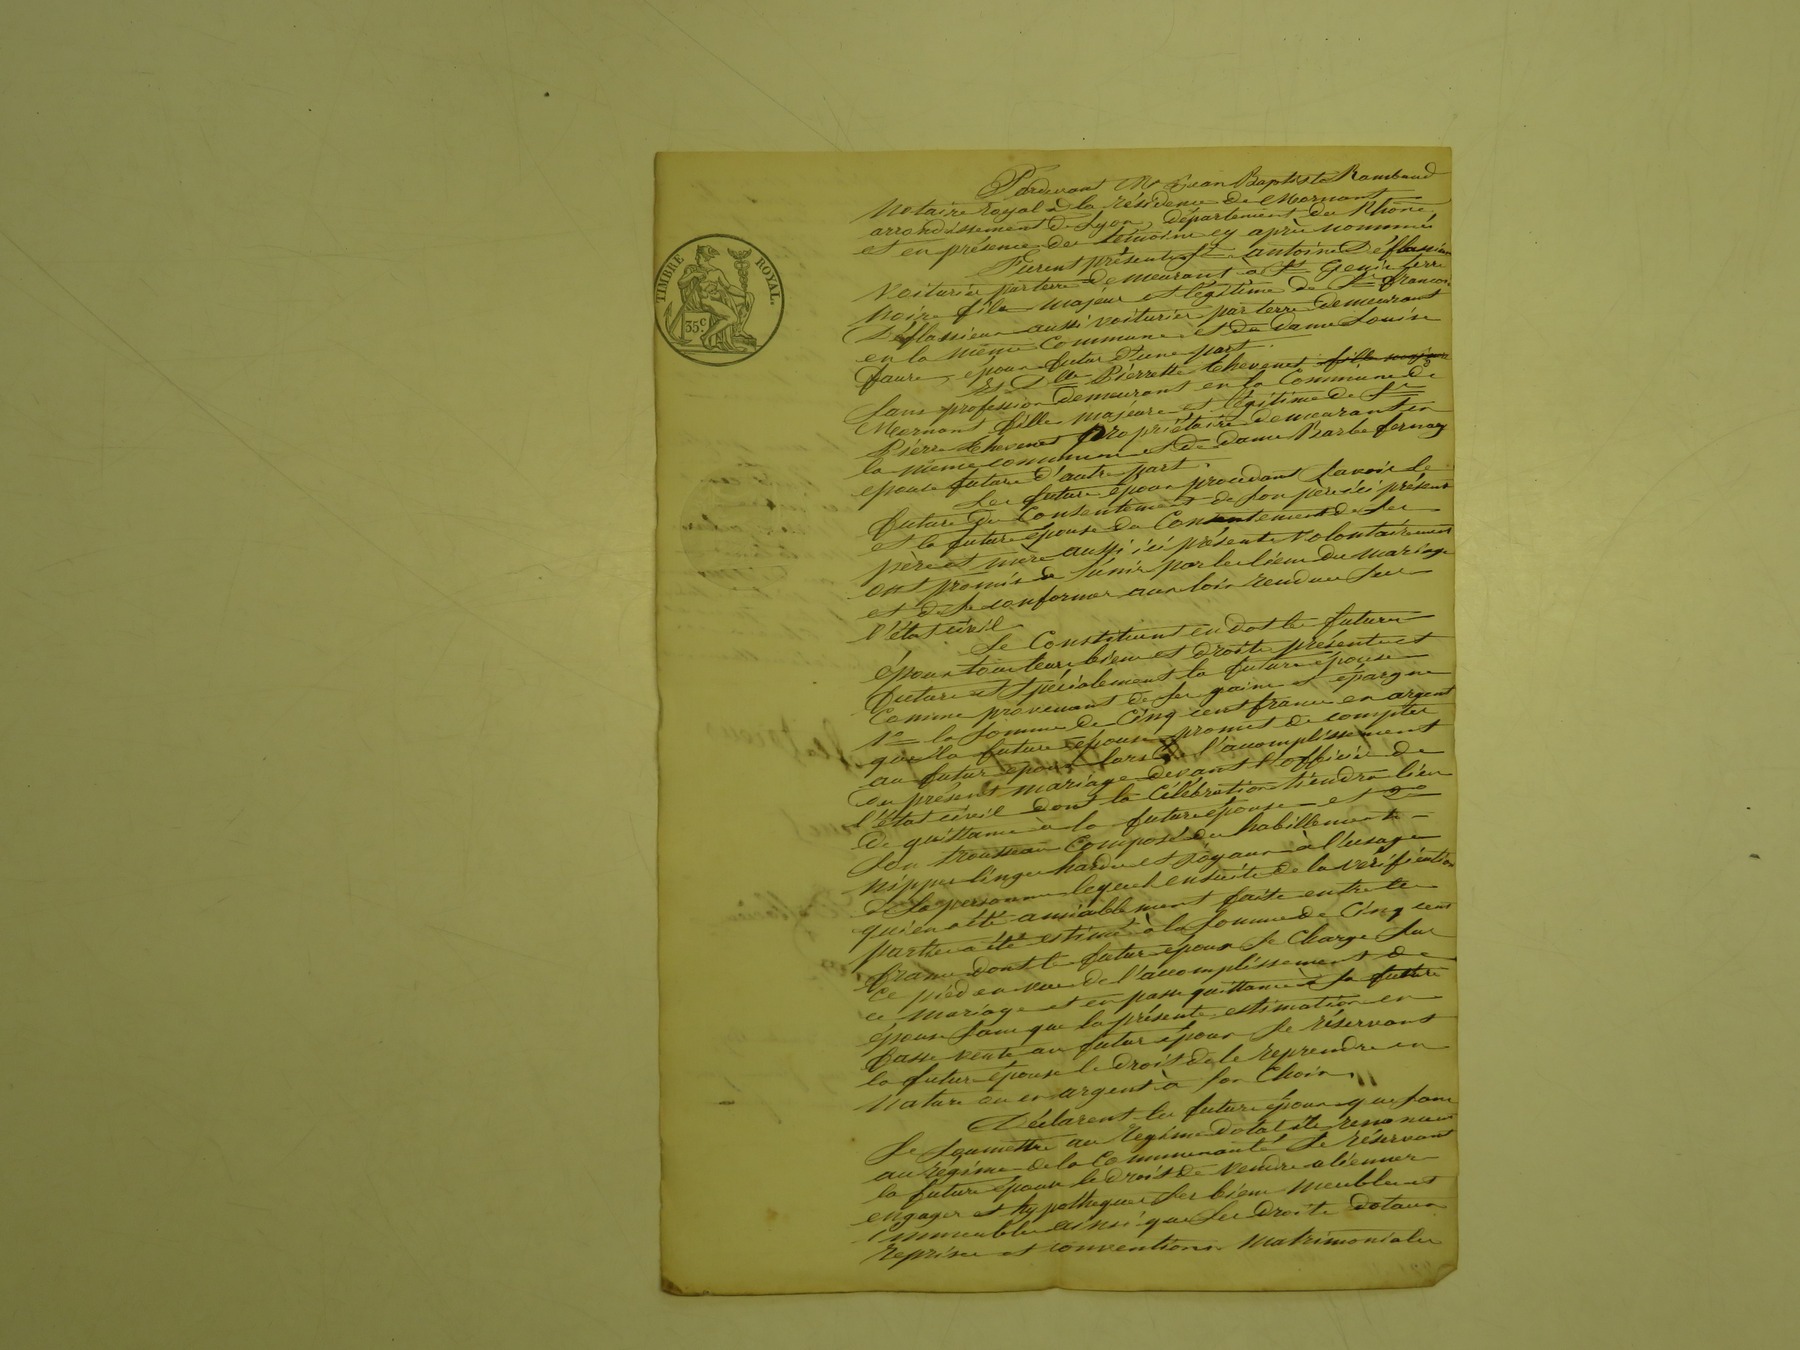 TIMBRE ROYAL.
35 c.
Pardevant Me Jean Baptiste Rambaud
Notaire royal à la résidence de Mornant
arrondissement de Lyon, département du Rhône,
et en présence des témoins cy après nommés
Furent présents Sr antoine Déflassieux
Voiturier par terre demeurant à St Genis terre
Noire fils majeur et légitime de Sr françois
Déflassieux aussi voiturier par terre demeurant
en la même Commune et de dame Louise
faure, époux futur d'une part.
Et Dlle Pierrette thevenet fille majeure
Sans profession demeurant en la Commune de
Mornant fille majeure et légitime de Sr
Pierre thevenet propriétaire demeurant en
la même commune et de dame Barbe fernay
épouse future d'autre part.
Les futurs époux procédant Savoir le
futur du Consentement de son père ici présent
et la future épouse du Consentement de Ses
père et mère aussi ici présents volontairement
ont promis de s'unir par les liens du mariage
et de se conformer aux lois rendues sur
l'état civil.
Se Constituent en dot les futurs
époux tous leurs biens et droits présents et
futurs et spécialement la future épouse
Comme provenant de ses gains et épargne
1º la somme de Cinq cents francs en argent
que la future épouse promet de compter
au futur époux lors de l'accomplissement
du présent mariage devant l'officier de
l'état civil dont la Célébration tiendra lieu
de quittance à la future épouse et 2º
Son trousseau Composé des habillements
nippes linges hardes et joyaux à l'usage
de Sa personne lequel ensuite de la vérification
qui en a été amiablement faite entre les
parties a été estimé à la somme de Cinq cents
francs dont le futur époux se Charge Sur
Ce pied en vue de l'accomplissement de
ce mariage et en passe quittance à la future
épouse sans que la présente estimation en
fasse vente au futur époux Se réservant
la future épouse le droit de le reprendre en
Nature ou en argent à son Choix.
Déclarent les futurs époux que pour
Se Soumettre au régime dotal ils renoncent
au régime de la Communauté Se réservant
la future épouse le droit de vendre aliéner
engager et hypothéquer Ses biens meubles et
immeubles ainsi que Ses droits dotaux
reprises et conventions matrimoniales